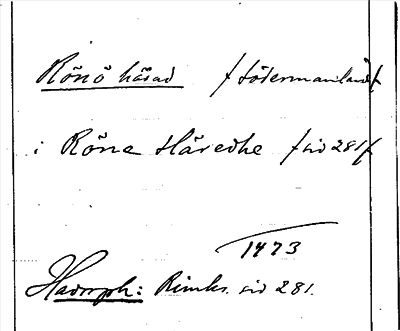 Rönö härad / Södermanland /
i Röne Häredhe / sid 281 /
1473
Hadorph: Rimkr. sid 281.